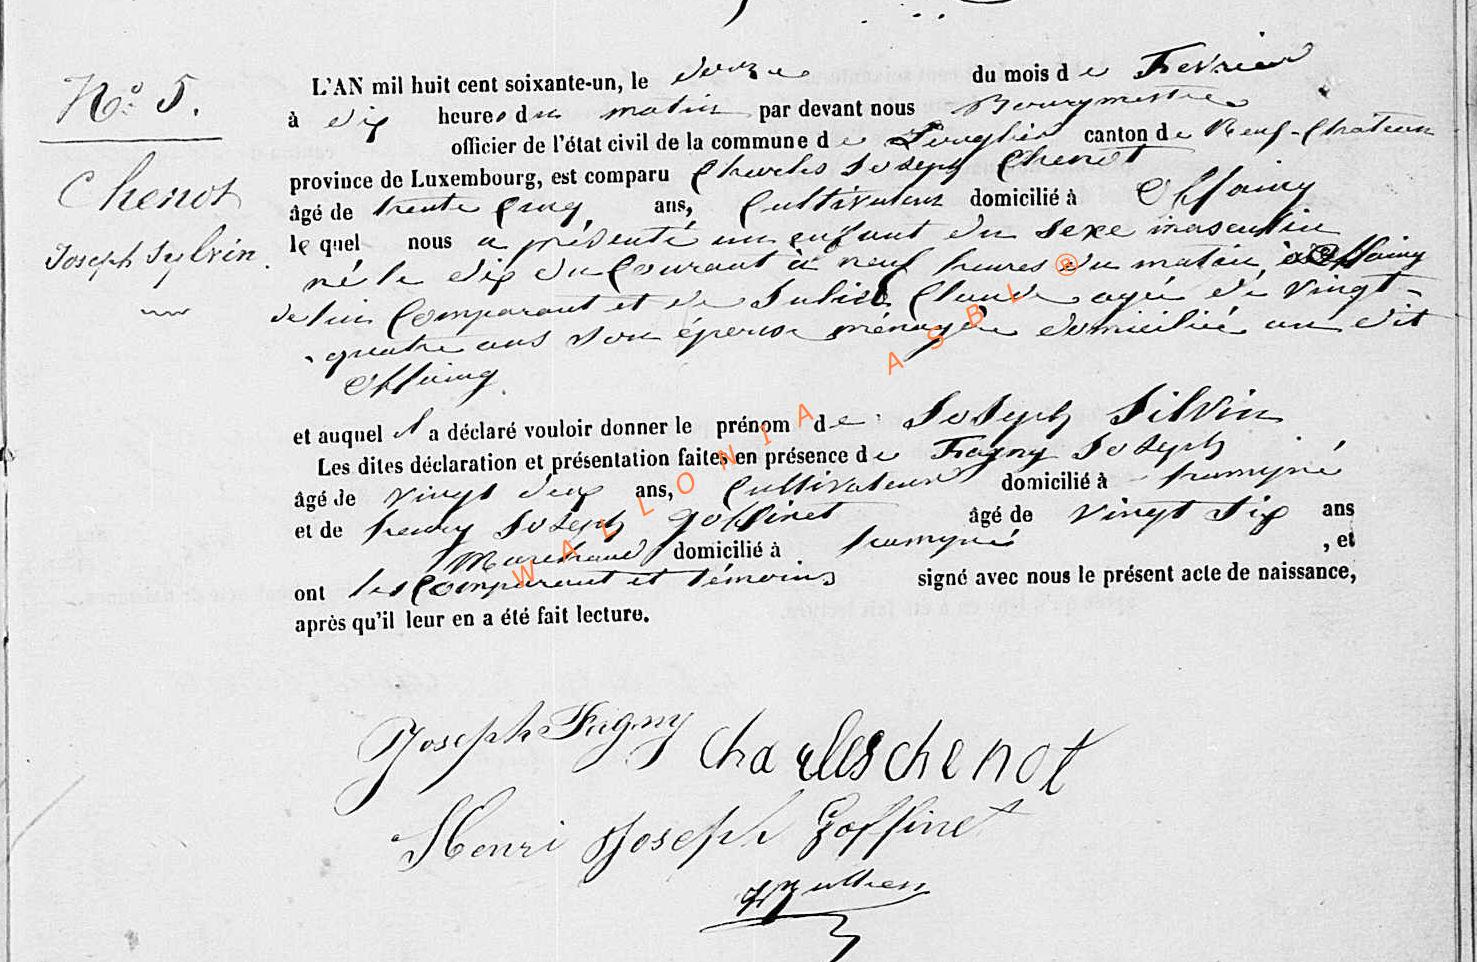 N.º 5.
Chenot
Joseph Sylvin.
L'AN mil huit cent soixante-un, le douze du mois de Fevrier
à dix heures du matin par devant nous Bourgmestre
officier de l'état civil de la commune de Longlier canton de Neuf-Château
province de Luxembourg, est comparu Charles Joseph Chenot
âgé de trente cinq, ans, Cultivateur domicilié à Offaing
lequel nous a présenté un enfant du sexe masculin
né le dix du Courant à neuf heures du matin, à Offaing
de lui Comparant et de Julie Claude agée de vingt-
quatre ans son épouse ménagère domiciliée au dit
Offaing.
et auquel il a déclaré vouloir donner le prénom de Joseph Silvin
Les dites déclaration et présentation faites en présence de Fagny Joseph
âgé de vingt deux ans, Cultivateur domicilié à
et de henry Joseph Goffinet âgé de vingt six ans
Marechaud domicilié à , et
ont les Comparant et témoins signé avec nous le présent acte de naissance,
après qu'il leur en a été fait lecture.
Joseph Fagny Charles chenot
Henri Joseph Goffinet
WALLONIA ASBL ®